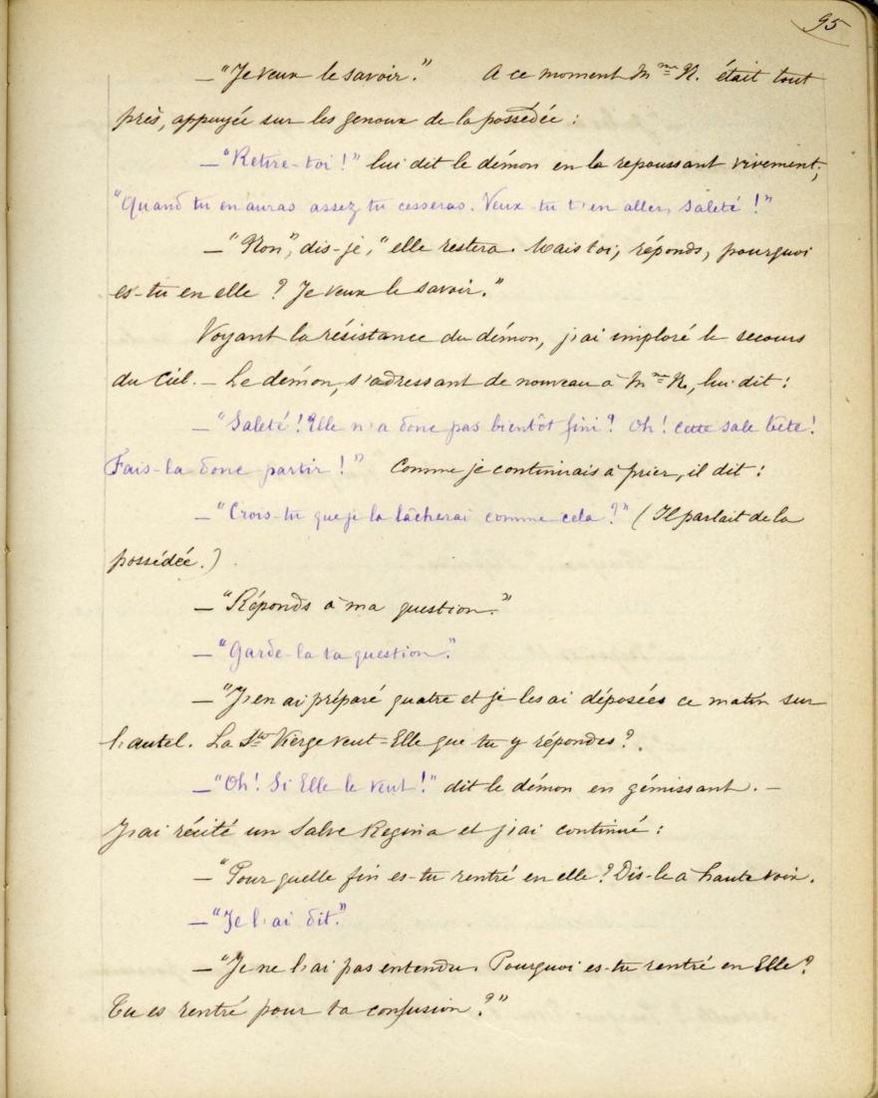 95
— "Je veux le savoir." A ce moment Mme N. était tout
près, appuyée sur les genoux de la possédée :
— "Retire-toi !" lui dit le démon en la repoussant vivement,
"Quand tu en auras assez tu cesseras. Veux-tu t'en aller, saleté !"
— "Non", dis-je, "elle restera. Mais toi, réponds, pourquoi
es-tu en elle ? Je veux le savoir."
Voyant la résistance du démon, j'ai imploré le secours
du Ciel. — Le démon, s'adressant de nouveau à Mme N., lui dit :
— "Saleté ! Elle n'a donc pas bientôt fini ? Oh ! cette sale bête !
Fais-la donc partir !" Comme je continuais à prier, il dit :
— "Crois-tu que je la lâcherai comme cela ?" (Il parlait de la
possédée.)
— "Réponds à ma question."
— "Garde-la ta question."
— "J'en ai préparé quatre et je les ai déposées ce matin sur
l'autel. La Ste Vierge veut-Elle que tu y répondes ?.
— "Oh ! Si Elle le veut !" dit le démon en gémissant. —
J'ai récité un Salve Regina et j'ai continué :
— "Pour quelle fin es-tu rentré en elle ? Dis-le à haute voix.
— "Je l'ai dit."
— "Je ne l'ai pas entendu. Pourquoi es-tu rentré en Elle ?
Tu es rentré pour ta confusion ?"